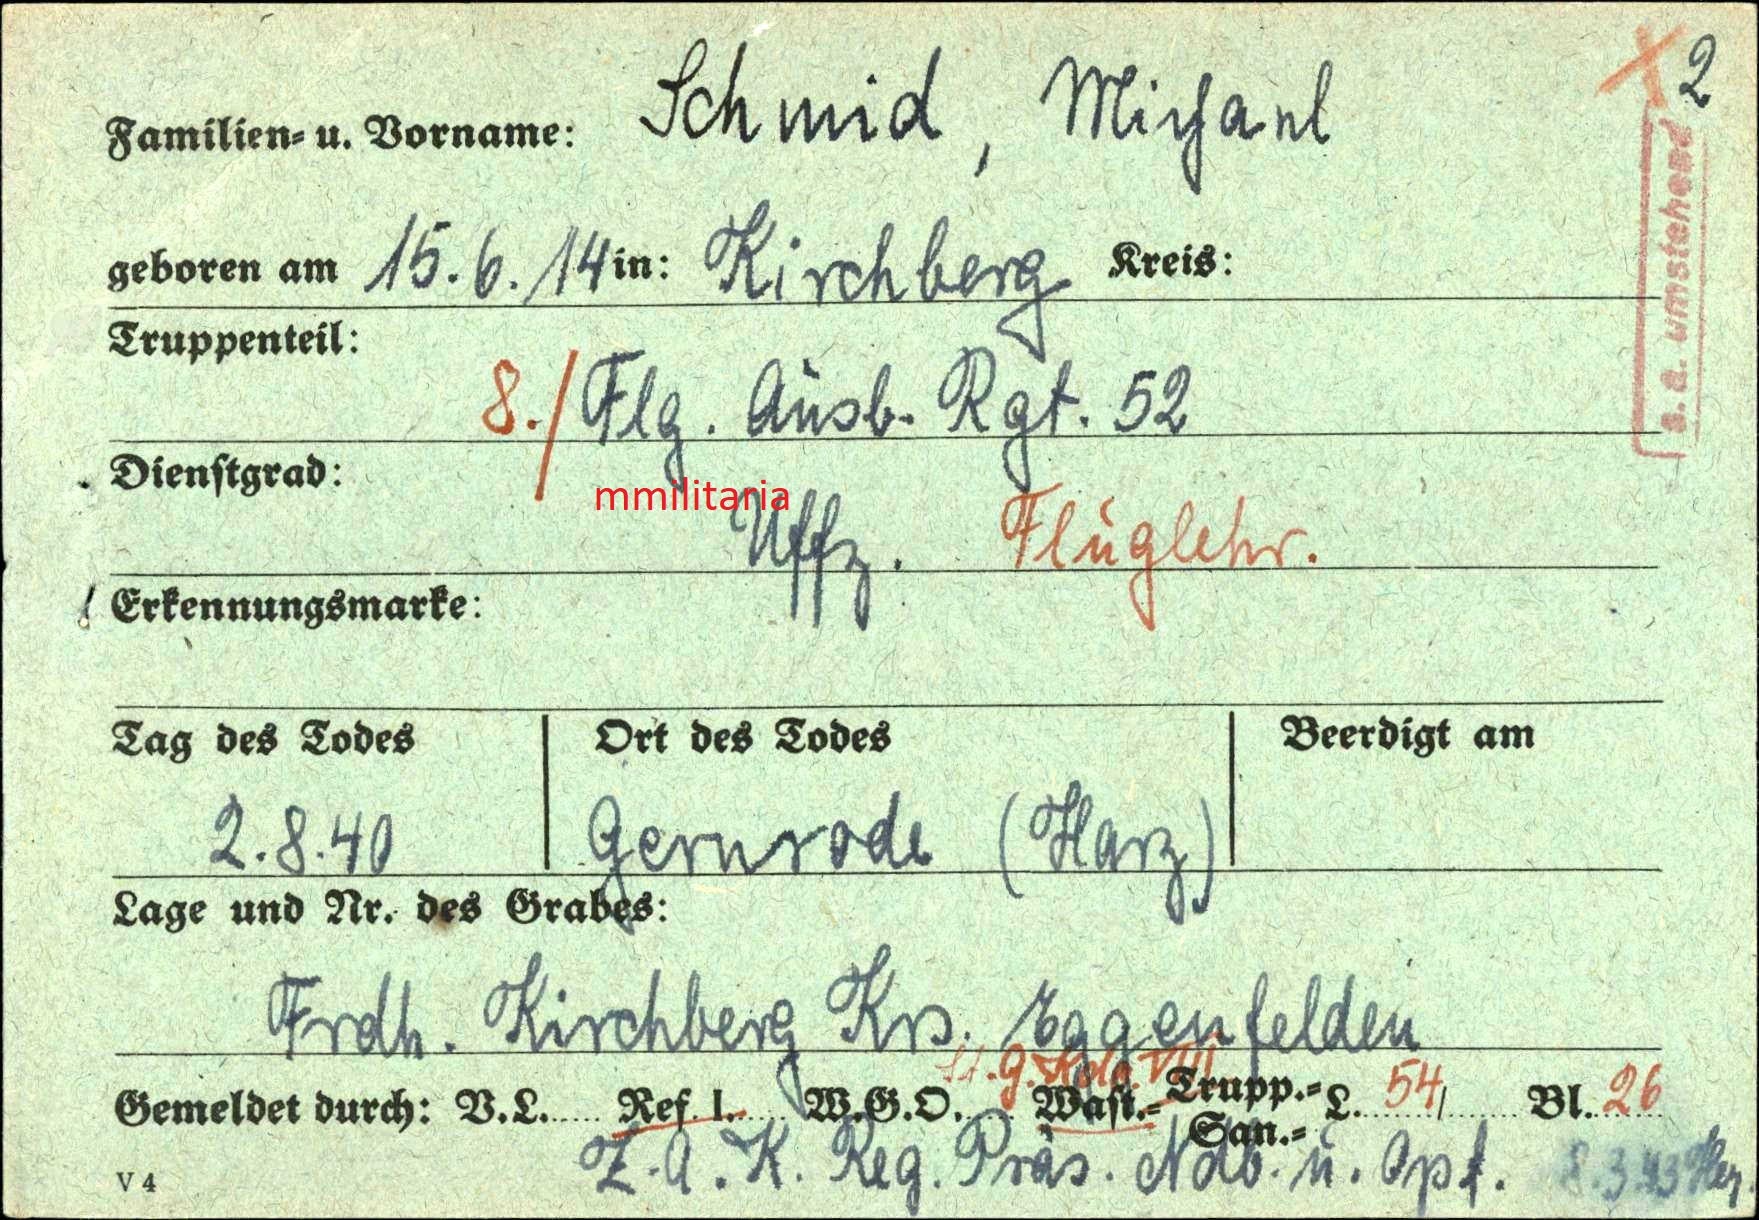 2
Familien- u. Vorname: Schmid, Michael
s. a. umstehend
geboren am 15.6.14 in: Kirchberg Kreis:
Truppenteil:
8./ Flg. Ausb. Rgt. 52
Dienstgrad:
mmilitaria
Uffz. Fluglehr.
Erkennungsmarke:
Tag des Todes Ort des Todes Beerdigt am
2.8.40 Gernrode (Harz)
Lage und Nr. des Grabes:
Frdh. Kirchberg Krs. Eggenfelden
Gemeldet durch: V.L. Ref. I. W.G.O. Wast.- Trupp.- San.- L. 54/ Bl. 26
Z.A.K. Reg. Präs. Ndb. u. Opf. 8.3.43
V 4